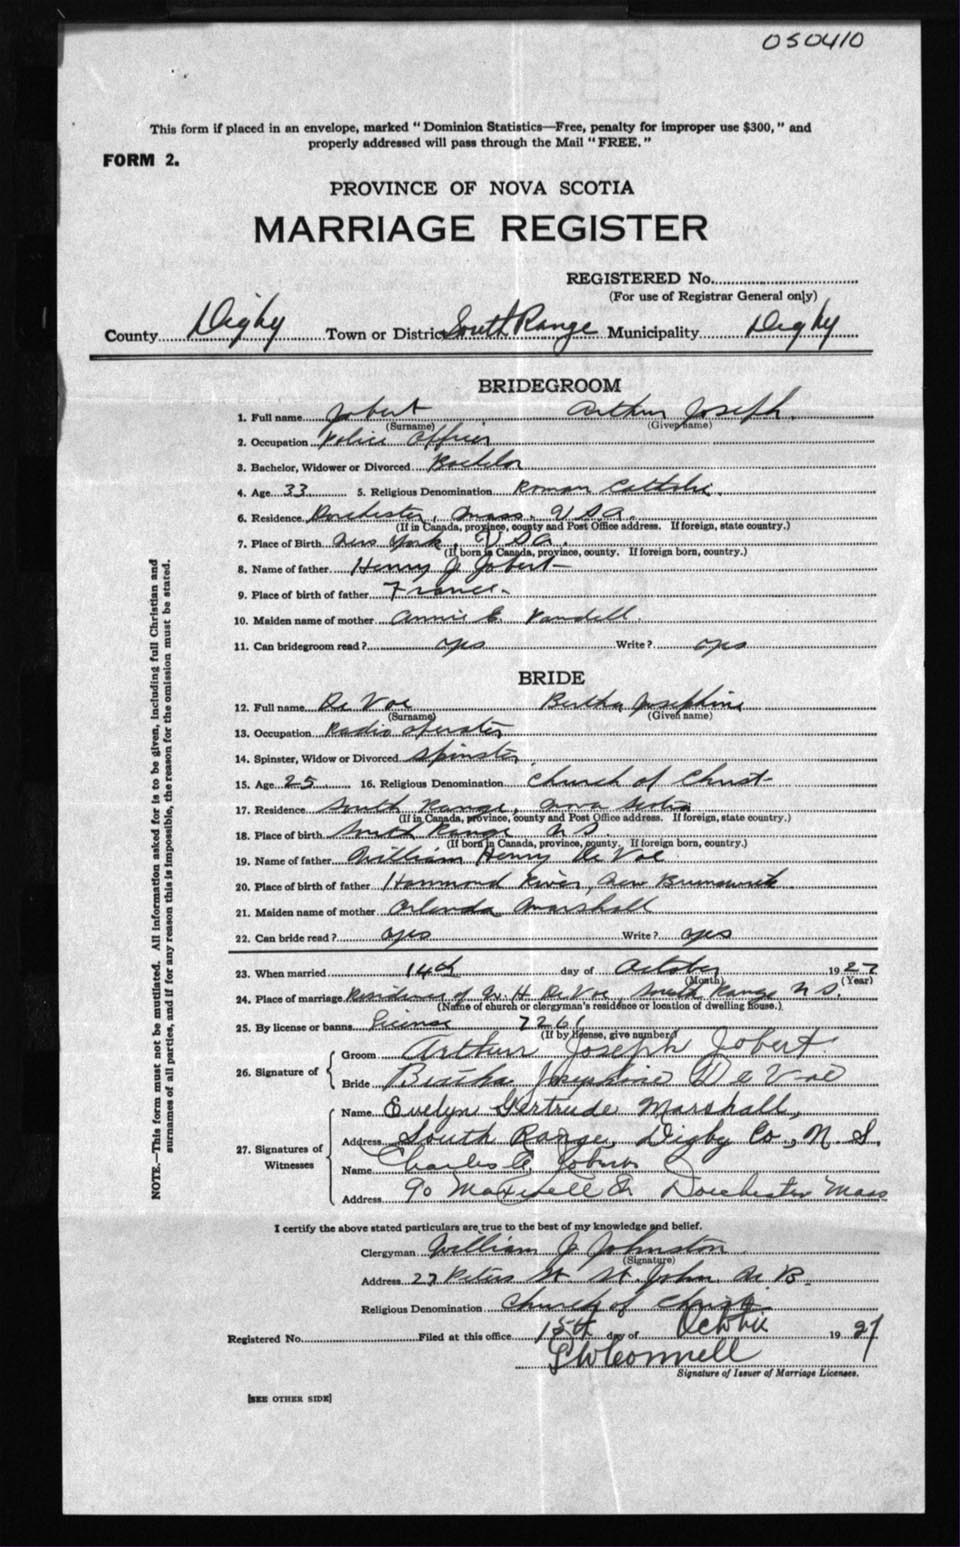 050410
This form if placed in an envelope, marked "Dominion Statistics—Free, penalty for improper use $300," and
properly addressed will pass through the Mail "FREE."
FORM 2.
PROVINCE OF NOVA SCOTIA
MARRIAGE REGISTER
REGISTERED No.
(For use of Registrar General only)
County Digby Town or District South Range Municipality Digby
BRIDEGROOM
1. Full name Jobert Arthur Joseph
(Surname) (Given name)
2. Occupation Police Officer
3. Bachelor, Widower or Divorced Bachelor
4. Age 33 5. Religious Denomination Roman Catholic
6. Residence Dorchester, Mass. U.S.A.
(If in Canada, province, county and Post Office address. If foreign, state country.)
7. Place of Birth New York, U.S.A.
(If born in Canada, province, county. If foreign born, country.)
8. Name of father Henry J Jobert
9. Place of birth of father France
10. Maiden name of mother Annie E.
11. Can bridegroom read? yes Write? yes
BRIDE
12. Full name De Voe Bertha Josephine
(Surname) (Given name)
13. Occupation Radio operator
14. Spinster, Widow or Divorced Spinster
15. Age 25 16. Religious Denomination Church of Christ
17. Residence South Range, Nova Scotia
(If in Canada, province, county and Post Office address. If foreign, state country.)
18. Place of birth South Range N S.
(If born in Canada, province, county. If foreign born, country.)
19. Name of father William Henry De Voe
20. Place of birth of father Hammond River, New Brunswick
21. Maiden name of mother Orlenda Marshall
22. Can bride read? yes Write? yes
23. When married 14th day of October 1927
(Month) (Year)
24. Place of marriage Residence of W. H. De Voe, South Range N S.
(Name of church or clergyman's residence or location of dwelling house.)
25. By license or banns License 7261
(If by license, give number)
26. Signature of
Groom Arthur Joseph Jobert
Bride Bertha Josephine De Voe
27. Signatures of Witnesses
Name Evelyn Gertrude Marshall,
Address South Range, Digby Co., N. S.
Name Charles
Address 90 Maxwell St Dorchester Mass
I certify the above stated particulars are true to the best of my knowledge and belief.
Clergyman William J. Johnston
(Signature)
Address 27 Peters St St. John N. B.
Religious Denomination Church of Christ
Registered No. Filed at this office 15th day of October 1927
Signature of Issuer of Marriage Licenses.
[SEE OTHER SIDE]
NOTE.—This form must not be mutilated. All information asked for is to be given, including full Christian and
surnames of all parties, and if for any reason this is impossible, the reason for the omission must be stated.